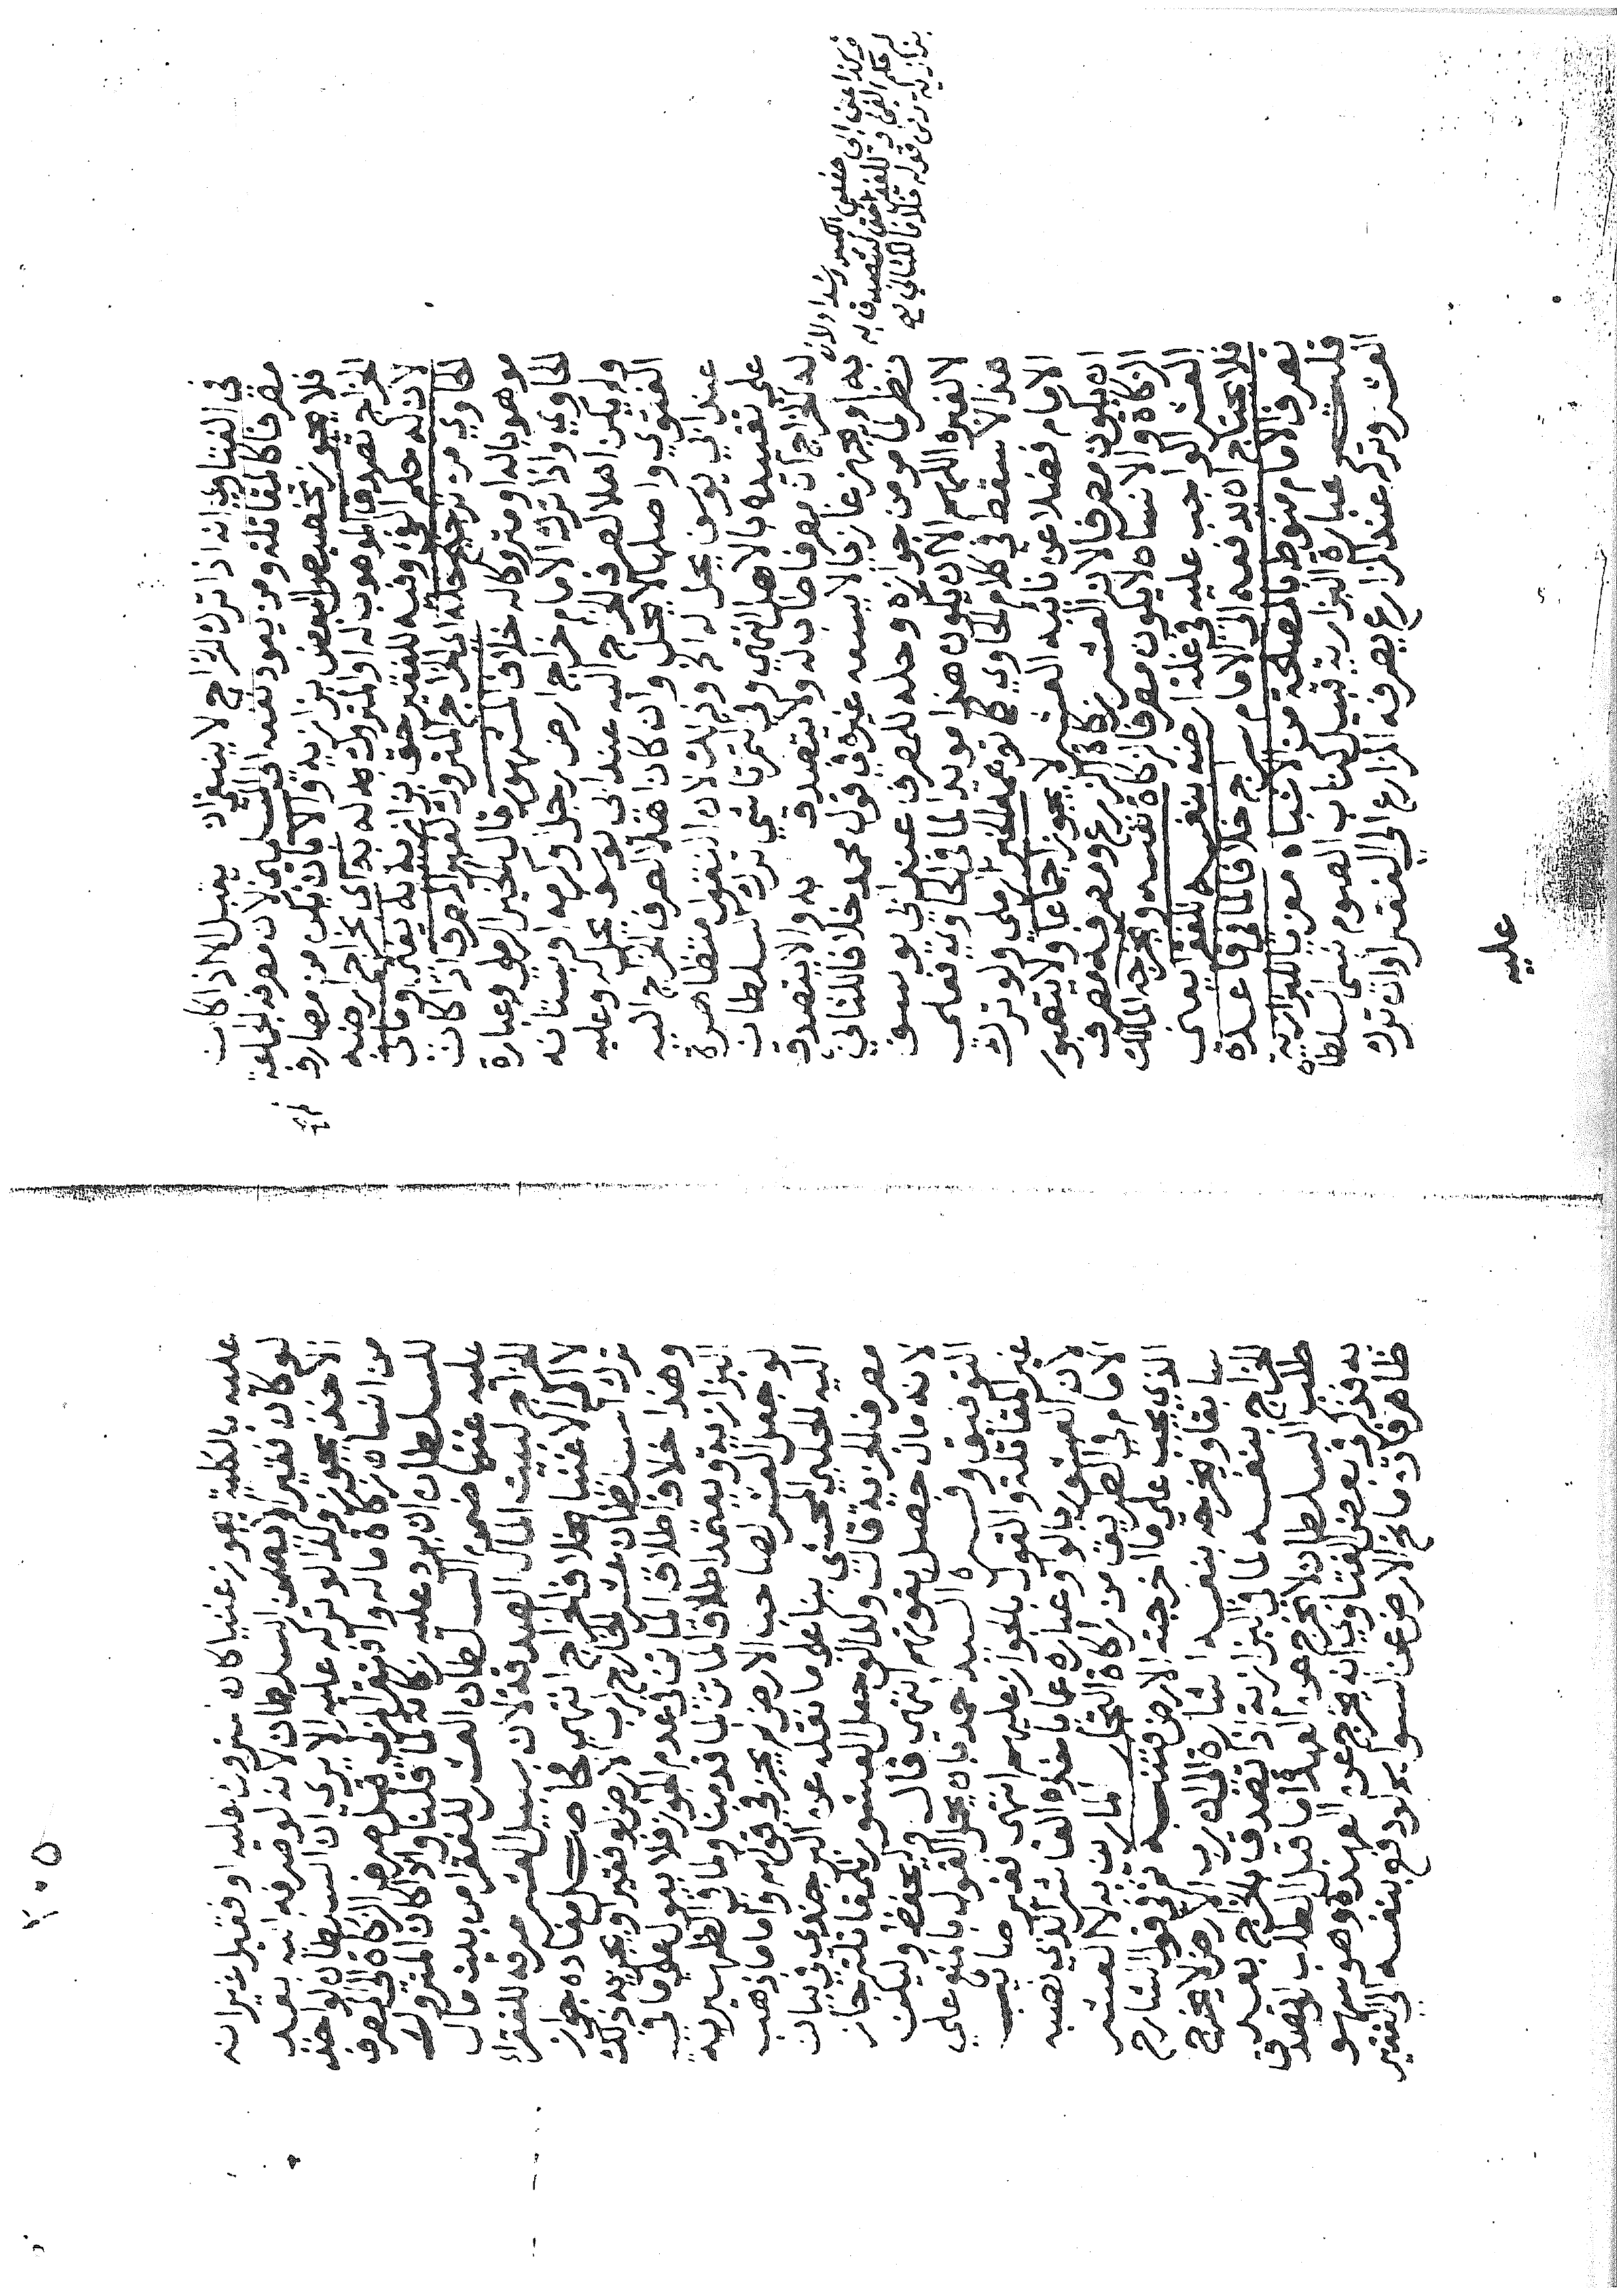 في الفتاوى انه اذا ترك الخراج لا ينبغي ان يقبل الا اذا كان
مصرفا كالمقاتلة ومن يعود نفعه الى المسلمين لان مصرفه الجماعة
فلا يجوز تخصيص البعض بزازية والا يكن من مصارف
الخراج تصدق الموهوب له او المتروك له به اى بخراج ارضه
لان له حكم الفئ وفيه للفقير حق بزازية به يفتى وما فى
الحاوي من ترجيح حله اى الخراج المتروك لغير المصرف اذا كان
موهوبا له او متروكا له خلاف المشهور قال الخير الرملي وعبارة
الحاوي واذا ترك الامام خراج ارض رجل او كرمه او بستانه
ولم يكن اهلا لصرف الخراج اليه عند ابى يوسف يحل له وعليه
الفتوى واصلها لا يحل وان كان اهلا لصرف الخراج اليه
عند ابي يوسف يحل له لان النقول متظاهرة
على تقييده بالاهل انتهى وفي التمرتاشي ترك السلطان
له الخراج ان مصرفا طاب له ولا يتصدق به والا يتصدق
به او يجهز غازيا لا يسعه غيره في قول محمد خلافا للثاني
نظرا لما مر من جوازه وحله للمصرف عند ابي يوسف
لا لغيره اللهم الا ان يكون هذا مويدا لما في الحاوي فعلى
هذا لا سقط في كلام الحاوي كما توهمه الخير الرملي ولو ترك
الامام فضلا عن نائبه العشر لا يجوز اجماعا ولا يتصور
ان يكون مصرفا لان العشر زكاة الزرع ومصرفه مصرف
الزكاة والانسان لا يكون مصرفا لزكاة نفسه ويخرجه المالك
العشر الواجب عليه في غلة ارضه بنفسه للفقراء يعني
فلا يحتاج ان يدفعه الى الامام سراج خلافا لما في قاعدة
تصرف الامام منوط بالمصلحة من الاشباه معزيا للبزازية
قلت عبارة البزازية قبيل كتاب الصوم نسي السلطان
العشر وترك عند الزارع يصرفه الزارع الى الفقراء وان ترك
عليه
وكذا عن ابي حفص الكبير
له حكم الفئ وللفقير حق فيتصدق به
بزازية من قوله خلافا للثاني
٢٠٥
عليه بالكلية يجوز غنيا كان من وجب عليه او فقيرا غير انه
لو كان فقيرا لا يضمن السلطان لانه لو صرفه اليه بعد
الاخذ يجوز وكذا لو تركه عليه الا يرى ان السلطان لو اخذ
من انسان زكاة ماله وافتقر المزكي قبل صرف الزكاة الى المصرف
للسلطان ان يرد عليه زكاته لما قلنا واذا كان المتروك
عليه غنيا ضمن السلطان العشر للفقراء من بيت مال
الخراج لبيت المال الصدقة لان سبيل العشر صرفه للفقراء
لا الى الاغنياء بخلاف الخراج انتهى مفاده جواز
ترك السلطان عشر الخارج لرب الارض لو فقيرا ويجزيه ذلك
وهذا خلاف اطلاق الماتن في عدم الجواز فلا يعول على ما في
البزازية ويعتمد اطلاق الماتن لما قدمنا وما في الظهيرية
لو جعل العشر لصاحب الارض لم يجز في قولهم واما ما ذهب
اليه الحلبي المحشي بناء على ما نقله عن البرجندي في بيان
مصرف الجزية قال وكذا لو جعل العشور للمقاتلة جاز
لانه مال حصل بقوتهم انتهى قال فليحفظ وليكن
التوفيق وفسره السيد احمد بان يحمل القول بالمنع على
غير المقاتلة والقول بالجواز عليهم انتهى فغير صائب
لان العشور بالواو عبارة عما ياخذه العاشر الذي نصبه
الامام في الطريق من زكاة التجار لمارين به لا العشر
الذي يجب على ما اخرجته الارض فتنبه ثم في قول الشارح
سابقا ويخرجه بنفسه اشارة الى ان رب الارض لا يخرج
الخراج بنفسه لما في البزازية اذا تصدق بالخراج بعد
طلب السلطان لا يخرج عن العهدة اما قبل الطلب لو تصدق
به فذكر في بعض الفتاوى انه يخرج عن العهدة وهو سهو
ظاهر فان خراج الارض دفع بنفسه الى الفقير